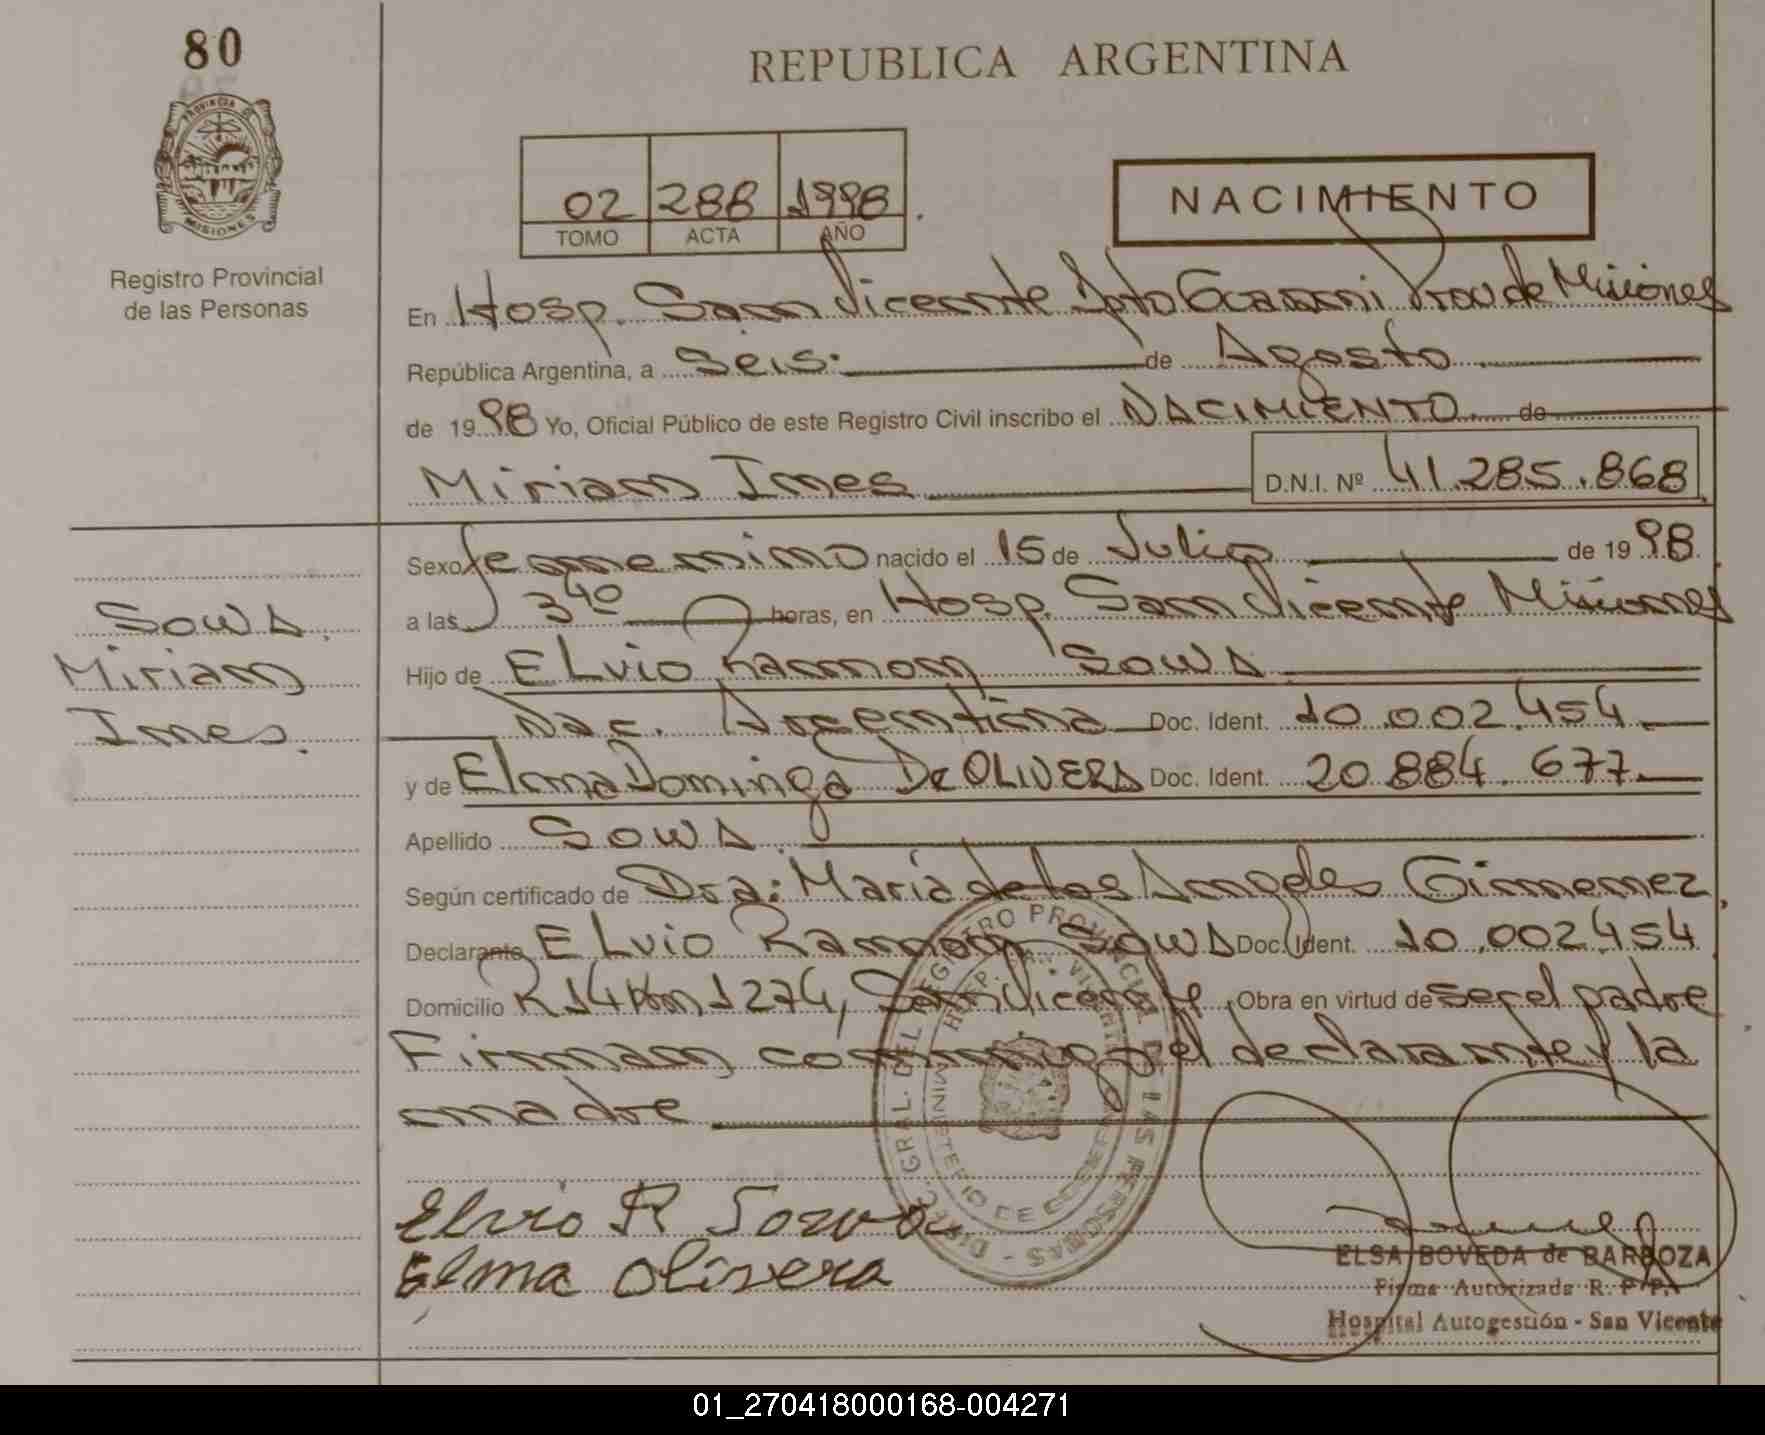 80
REPUBLICA ARGENTINA
PROVINCIA DE MISIONES
Registro Provincial
de las Personas
02 288 1998
TOMO ACTA AÑO
NACIMIENTO
En Hosp. San Vicente Dpto Guarani Prov de Misiones
República Argentina, a Seis. de Agosto
de 1998 Yo, Oficial Público de este Registro Civil inscribo el NACIMIENTO. de
Miriam Ines D.N.I. Nº 41.285.868
Sexo femenino nacido el 15 de Julio de 1998.
a las 3 40 horas, en Hosp. San Vicente Misiones
Hijo de ELvio Ramon SowA
Nac. Argentina Doc. Ident. 10.002.454.
y de Elma Dominga De OLIVERA Doc. Ident. 20.884.677.
Apellido SowA
Según certificado de Dra: Maria de los Angeles Gimenez.
Declarante ELvio Ramon SowA Doc. Ident. 10.002.454
Domicilio R 14 Km 1274, San Vicente, Obra en virtud de ser el padre
Firman conmigo el declarante y la
madre
Sowa
Miriam
Ines.
DIREC. GRAL. DEL REGISTRO PROVINCIAL DE LAS PERSONAS
HOSP. SAN VICENTE
MINISTERIO DE GOBIERNO
Elvio R Sowa
Elma Olivera
ELSA BOVEDA de BARBOZA
Firma Autorizada R. P. P.
Hospital Autogestión - San Vicente
01_270418000168-004271